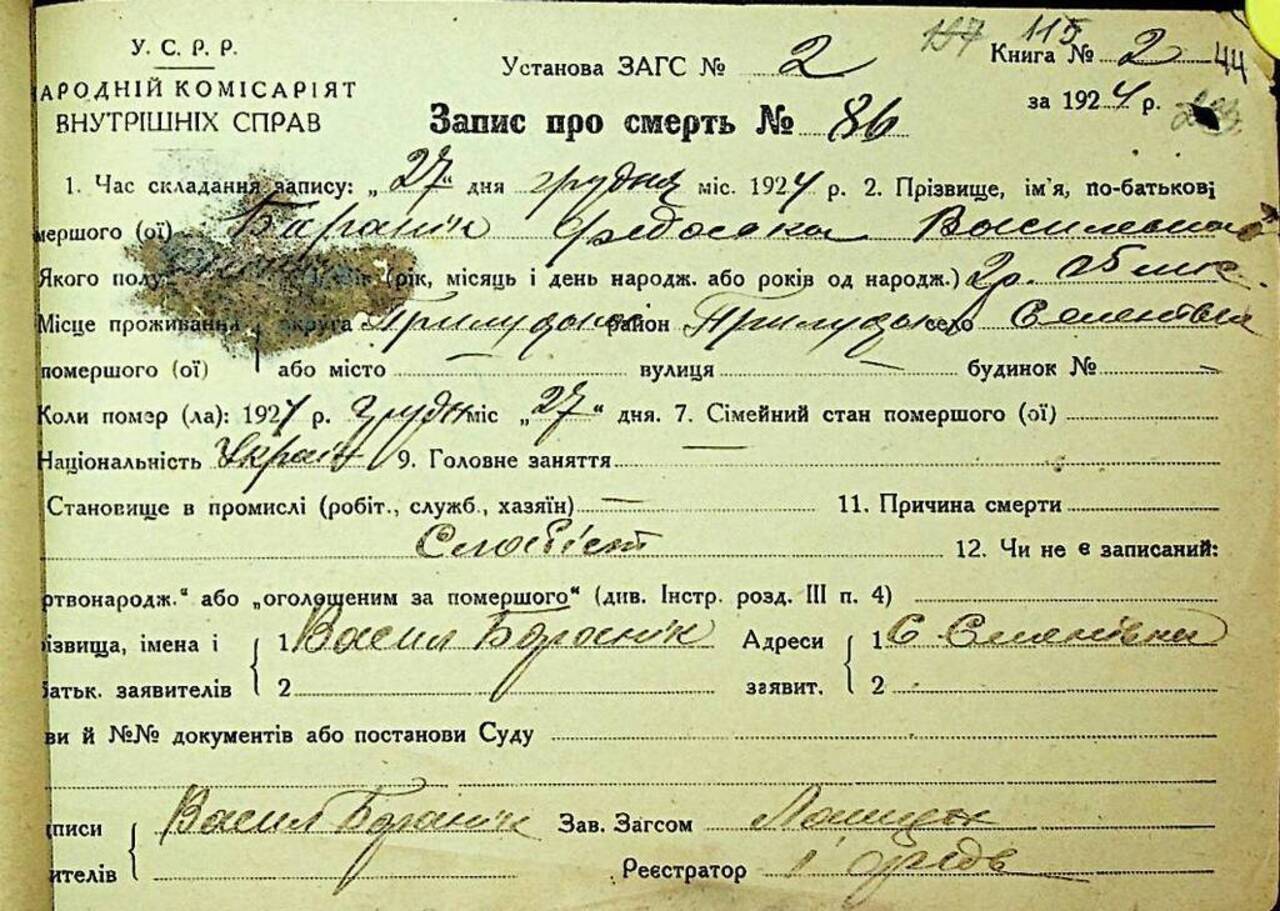 У. С. Р. Р.
АРОДНІЙ КОМІСАРІЯТ
ВНУТРІШНІХ СПРАВ
Установа ЗАГС № 2
115
Книга № 2 44
за 1924 р.
Запис про смерть № 86
1. Час складання запису: „27“ дня грудня міс. 1924 р. 2. Прізвище, ім'я, по-батькові
мершого (ої) Баранік Федосека Васильевна
Якого полу (рік, місяць і день народж. або років од народж.) 2 р.
Місце проживання округа Прилуцька район Прилуцьк село
померșого (ої) або місто вулиця будинок №
Коли помер (ла): 1924 р. Грудн міс „27“ дня. 7. Сімейний стан помершого (ої)
Національність Україн 9. Головне заняття
Становище в промислі (робіт., служб., хазяїн) 11. Причина смерти
Слабіст 12. Чи не є записаний:
ртвонародж.“ або „оголошеним за помершого“ (див. Інстр. розд. III п. 4)
різвища, імена і 1 Васил Баранік Адреси 1 С.
батьк. заявителів 2 заявит. 2
ви й №№ документів або постанови Суду
дписи Васил Баранік Зав. Загсом
ителів Реєстратор